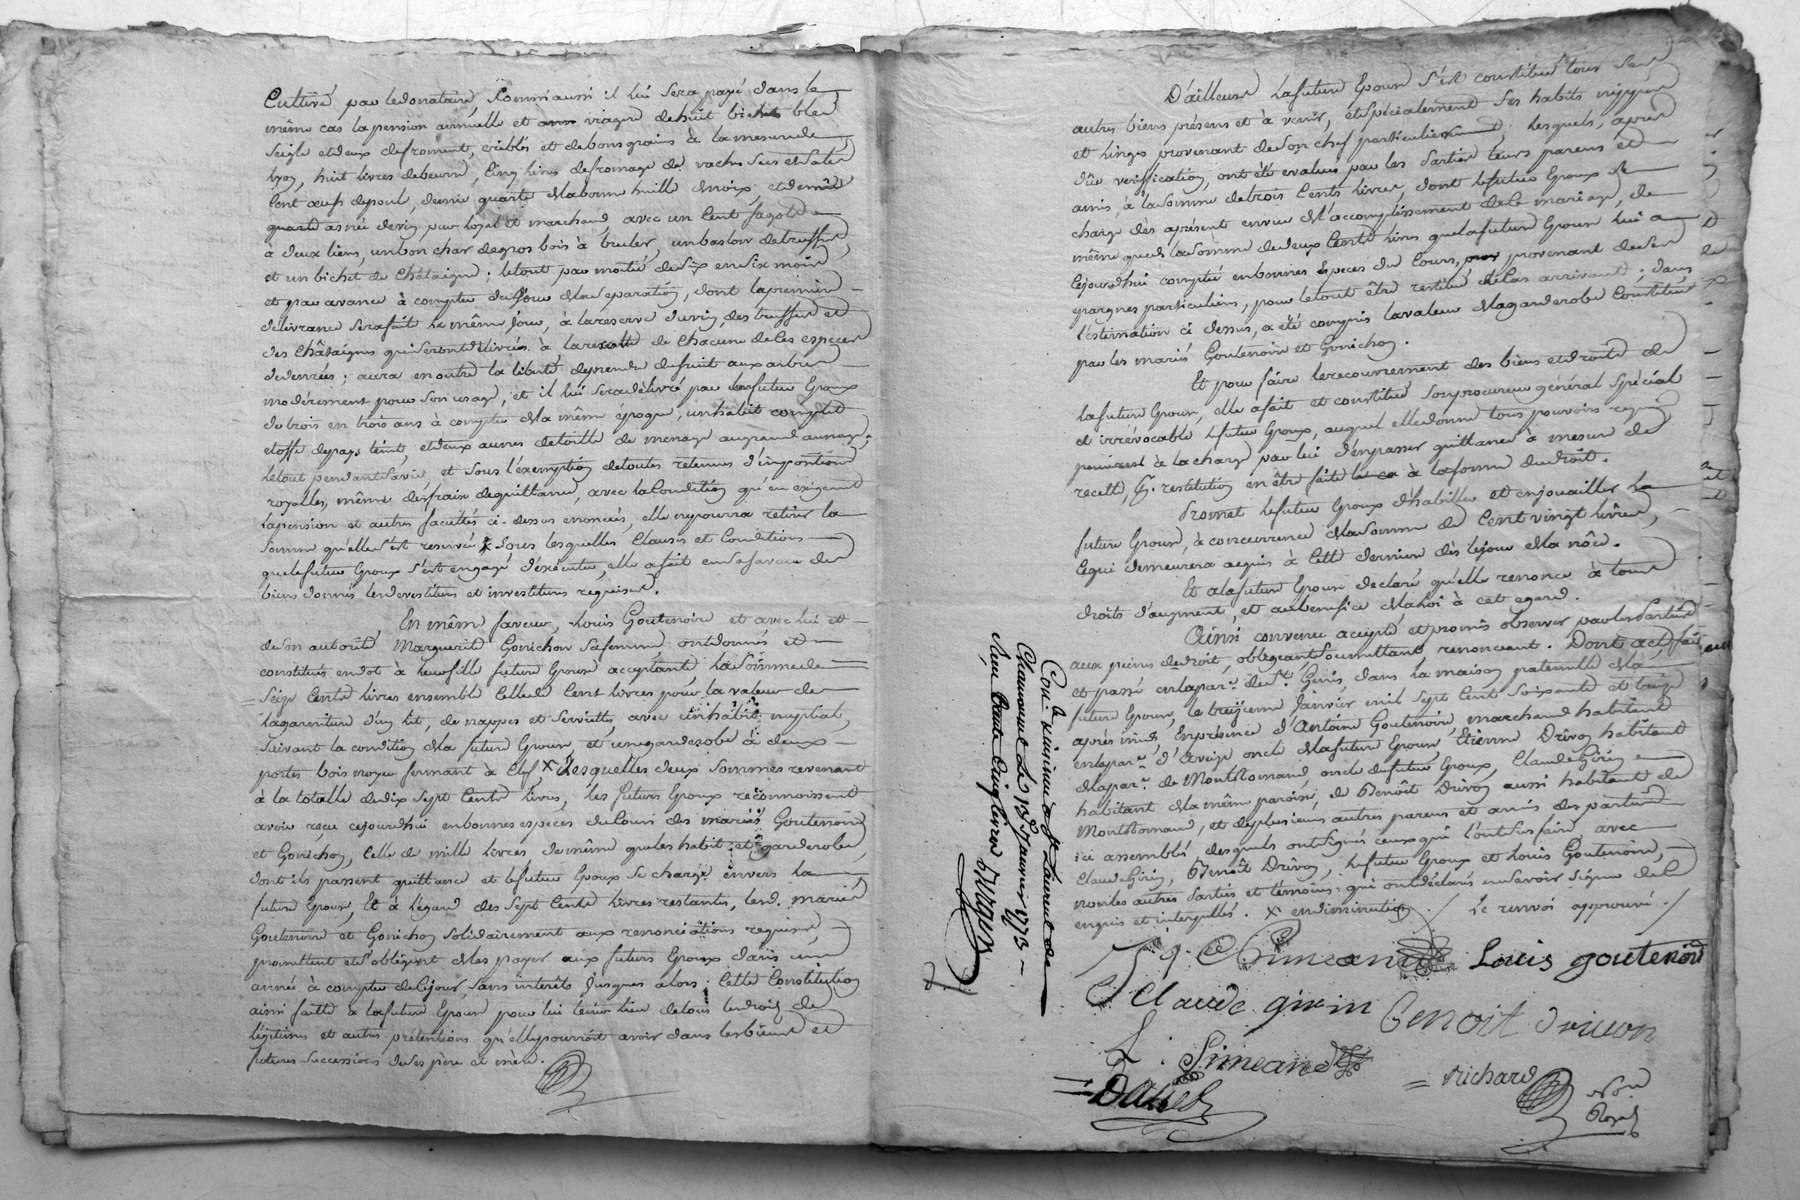 Cultivé par le donataire, comm'aussi il lui sera payé dans le
même cas la pension annuelle et viagere de huit bichets bled
seigle et deux de froment, criblés et de bons grains à la mesure de
Lyon, huit livres de beurre, cinq livres de fromage de vache secs et salés
Cent œufs de poule, demie quarte de bonne huille de noix, et demie
asnée de vin pur loyal et marchand avec un Cent fagots
à deux liens, un bon char de gros bois à bruler, un de truffes
et un bichet de Châtaignes ; le tout par moitié de six en six mois
et par avance à compter du jour de la separation, dont la premiere
délivrance sera faite le même jour, à la reserve du vin, des truffes et
des Châtaignes qui seront délivrés à la recolte de chacune de ces especes
de denrées ; aura en outre la liberté de prendre du fruit aux arbres
modérément pour son usage, et il lui sera délivré par le futur Epoux
de trois en trois ans à compter de la même époque, un habit complet
etoffe de pays teint, et deux aunes de toille de menage au grand aunage,
le tout pendant sa vie, et sous l'exemption de toutes retenues d'impositions
royalles, même des frais de quittance, avec la Condition qu'en exigeant
la pension et autres facultés ci-dessus enoncées, elle ne pourra retirer la
somme qu'elle s'est reservée x sous lesquelles Clauses et Conditions
que le futur Epoux s'est engagé d'exécuter, elle a fait en sa faveur des
biens donnés les devestitures et investitures requises.
En même faveur, Louis Goutenoire et avec lui et
de son autorité Marguerite Gonichon sa femme, ont donnés et
constitués en dot à leur fille future Epouse acceptante, la somme de
Sept Cents livres ensemble celle de Cent livres pour la valeur de
la garniture d'un lit, de nappes et serviettes, avec un habit nuptial,
suivant la condition de la future Epouse, et une garderobe à deux
portes bois noyer fermant à clef, x Lesquelles deux sommes revenant
à la totalle de dix sept Cents livres, les futurs Epoux reconnoissent
avoir reçu cejourdhui en bonnes especes du cours des mariés Goutenoire
et Gonichon, celle de mille livres, de même que les habit et garderobe,
dont ils passent quittance et le futur Epoux se charge envers la
future Epouse, Et à l'égard des Sept Cents livres restantes, lesd. mariés
Goutenoire et Gonichon solidairement aux renonciations requises,
promettent et s'obligent de les payer aux futurs Epoux dans une
année à compter de ce jour, sans intérêts jusques alors ; cette Constitution
ainsi faitte à la future Epouse pour lui tenir lieu de tous les droits de
légitime et autres prétentions qu'elle pourroit avoir dans les biens et
futures successions de ses père et mère.
D'ailleurs la future Epouse s'est constitué tous ses
autres biens présens et à venir, et spécialement ses habits nippes
et linges provenant de son chef particulierement, lesquels, après
dûe vérification, ont été evalués par les Parties leurs parens et
amis, à la somme de trois Cents livres, dont le futur Epoux se
charge dès aprésent envue de l'accomplissement de ce mariage, de
même que de la somme de deux Cents livres que la future Epouse lui a
cejourdhui compté en bonnes especes du cours, provenant de ses
epargnes particuliers, pour le tout être restitué le cas arrivant ; dans
l'estimation ci dessus, a été compris la valeur de la garderobe Constitué
par les mariés Goutenoire et Gonichon.
Et pour faire le recouvrement des biens et droits de
la future Epouse, elle a fait et constitué son procureur général spécial
et irrévocable le futur Epoux, auquel elle donne tous pouvoirs requis
à la charge par lui d'en passer quittance à mesure de
recette, restitution en être faite à la forme du droit.
Promet le futur Epoux d'habiller et enjouailler la
future Epouse, à concurrence de la somme de Cent vingt livres,
ce qui demeurera acquis à cette derniere dès le jour de la nôce.
Et a la future Epouse declaré qu'elle renonce à tous
droits d'augment, et au benefice de la loi à cet egard.
Ainsi convenu accepté et promis observer par les Parties
aux peines de droit, obligeant soumettant renonceant. Dont acte, fait
et passé en la par.e de St. Genis, dans la maison paternelle de la
future Epouse, le treizieme Janvier mil sept Cent soixante et treize
après midi, En présence d'Antoine Goutenoire, marchand habitant
en la par.e d'Aveize oncle de la future Epouse, Etienne Drivon habitant
de la par.e de Montromand, oncle du futur Epoux, Claude Girin
habitant de la même paroisse, de Benoît Drivon aussi habitant de
Montromand, et de plusieurs autres parens et amis des parties
ici assemblés, desquels ont signés ceux qui l'ont sçu faire, avec
Claude Girin, Benoît Drivon, le futur Epoux et Louis Goutenoire,
non les autres Parties et témoins qui ont déclarés ne savoir signer de ce
enquis et interpellés. x en diminution / Le renvoi approuvé ./.
Louis goutenoire
Claude girin Benoit drivon
L. Simeand
Richard No.re
Royal
Con.lé au Xieme de St Laurent de
Chamousset le 13 Janvier 1773